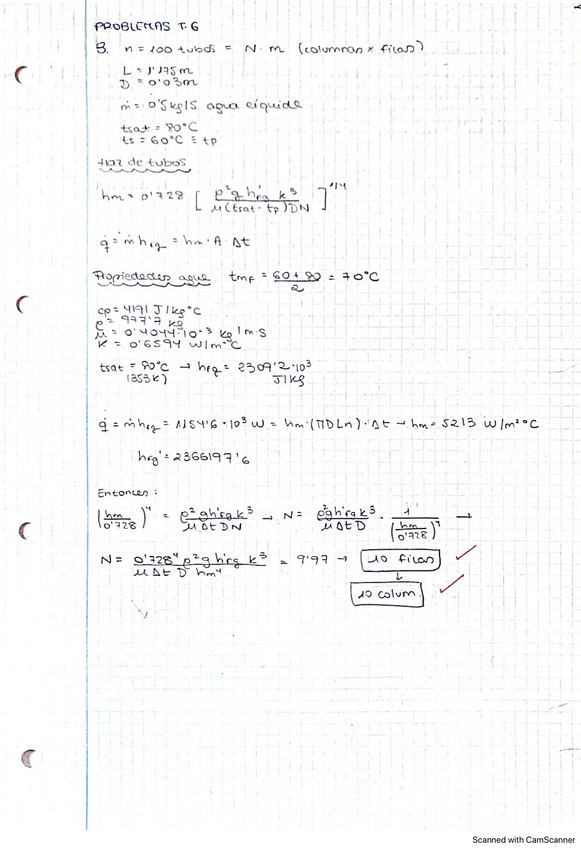 PROBLEMAS T.6
3. n = 100 tubos = N·m (columnas x filas)
L = 1'175m
D = 0'03m
ṁ = 0'5kg/s agua líquida
tsat = 80°C
ts = 60°C ≡ tp
Haz de tubos
hm = 0'728 [ ρ²g h'fg k³ / μ(tsat - tp)DN ]^1/4
q̇ = ṁ hfg = hm · A · Δt
Propiedades agua tmf = 60+80 / 2 = 70°C
cp = 4191 J/kg°C
ρ = 977'7 kg
μ = 0'4044·10⁻³ kg/m·s
K = 0'6594 W/m°C
tsat = 80°C → hfg = 2309'2·10³
(353K) J/kg
q̇ = ṁ hfg = 1154'6·10³ W = hm·(πDLn)·Δt → hm = 5213 W/m²°C
hfg' = 2366197'6
Entonces:
(hm / 0'728)⁴ = ρ² g h'fg k³ / μ Δt D N → N = ρ²g h'fg k³ / μ Δt D · 1 / (hm / 0'728)⁴ →
N = 0'728⁴ ρ² g h'fg k³ / μ Δt D hm⁴ = 9'97 → 10 filas
↓
10 colum.
Scanned with CamScanner